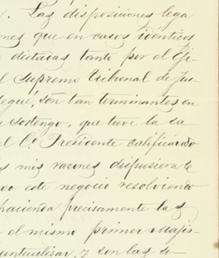 . Las disposiciones lega
nes que en casos identicos
dictadas tanto por el Eje
l Supremo Tribunal de Jus
egué, son tan terminantes en
sostengo, que tuve la su
l C. Presidente calificando
s mis razones dispusiera se
vo este negocio resolviendo
haciendo precisamente las
el mismo primer Majis-
puntualizar, y son las de-